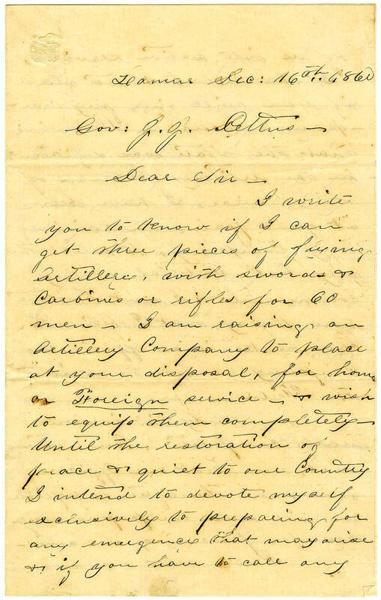 Lamar Dec: 16th. 1860
Gov: J. J. Pettus –
Dear Sir –
I write
you to know if I can
get three pieces of
artillery, with swords &
Carbines or rifles for 60
men – I am raising an
Artillery Company to place
at your disposal, for home
or Foreign service – & wish
to equip them completely –
Until the restoration of
peace & quiet to our Country
I intend to devote myself
exclusively to preparing for
any emergence that may arise
& if you have to call any